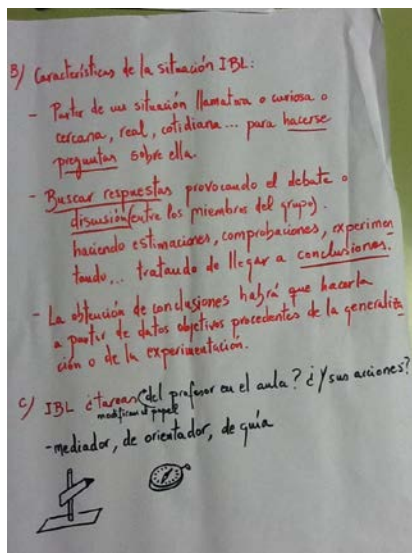 B/ Características de la situación IBL:
- Partir de una situación llamativa o curiosa o
cercana, real, cotidiana... para hacerse
preguntas sobre ella.
- Buscar respuestas provocando el debate o
discusión (entre los miembros del grupo).
haciendo estimaciones, comprobaciones, experimen
tando,... tratando de llegar a conclusiones.
- La obtención de conclusiones habrá que hacerla
a partir de datos objetivos procedentes de la generaliza
ción o de la experimentación.
C/ IBL ¿tareas del profesor en el aula? ¿Y sus acciones?
modifican el papel
- mediador, de orientador, de guía